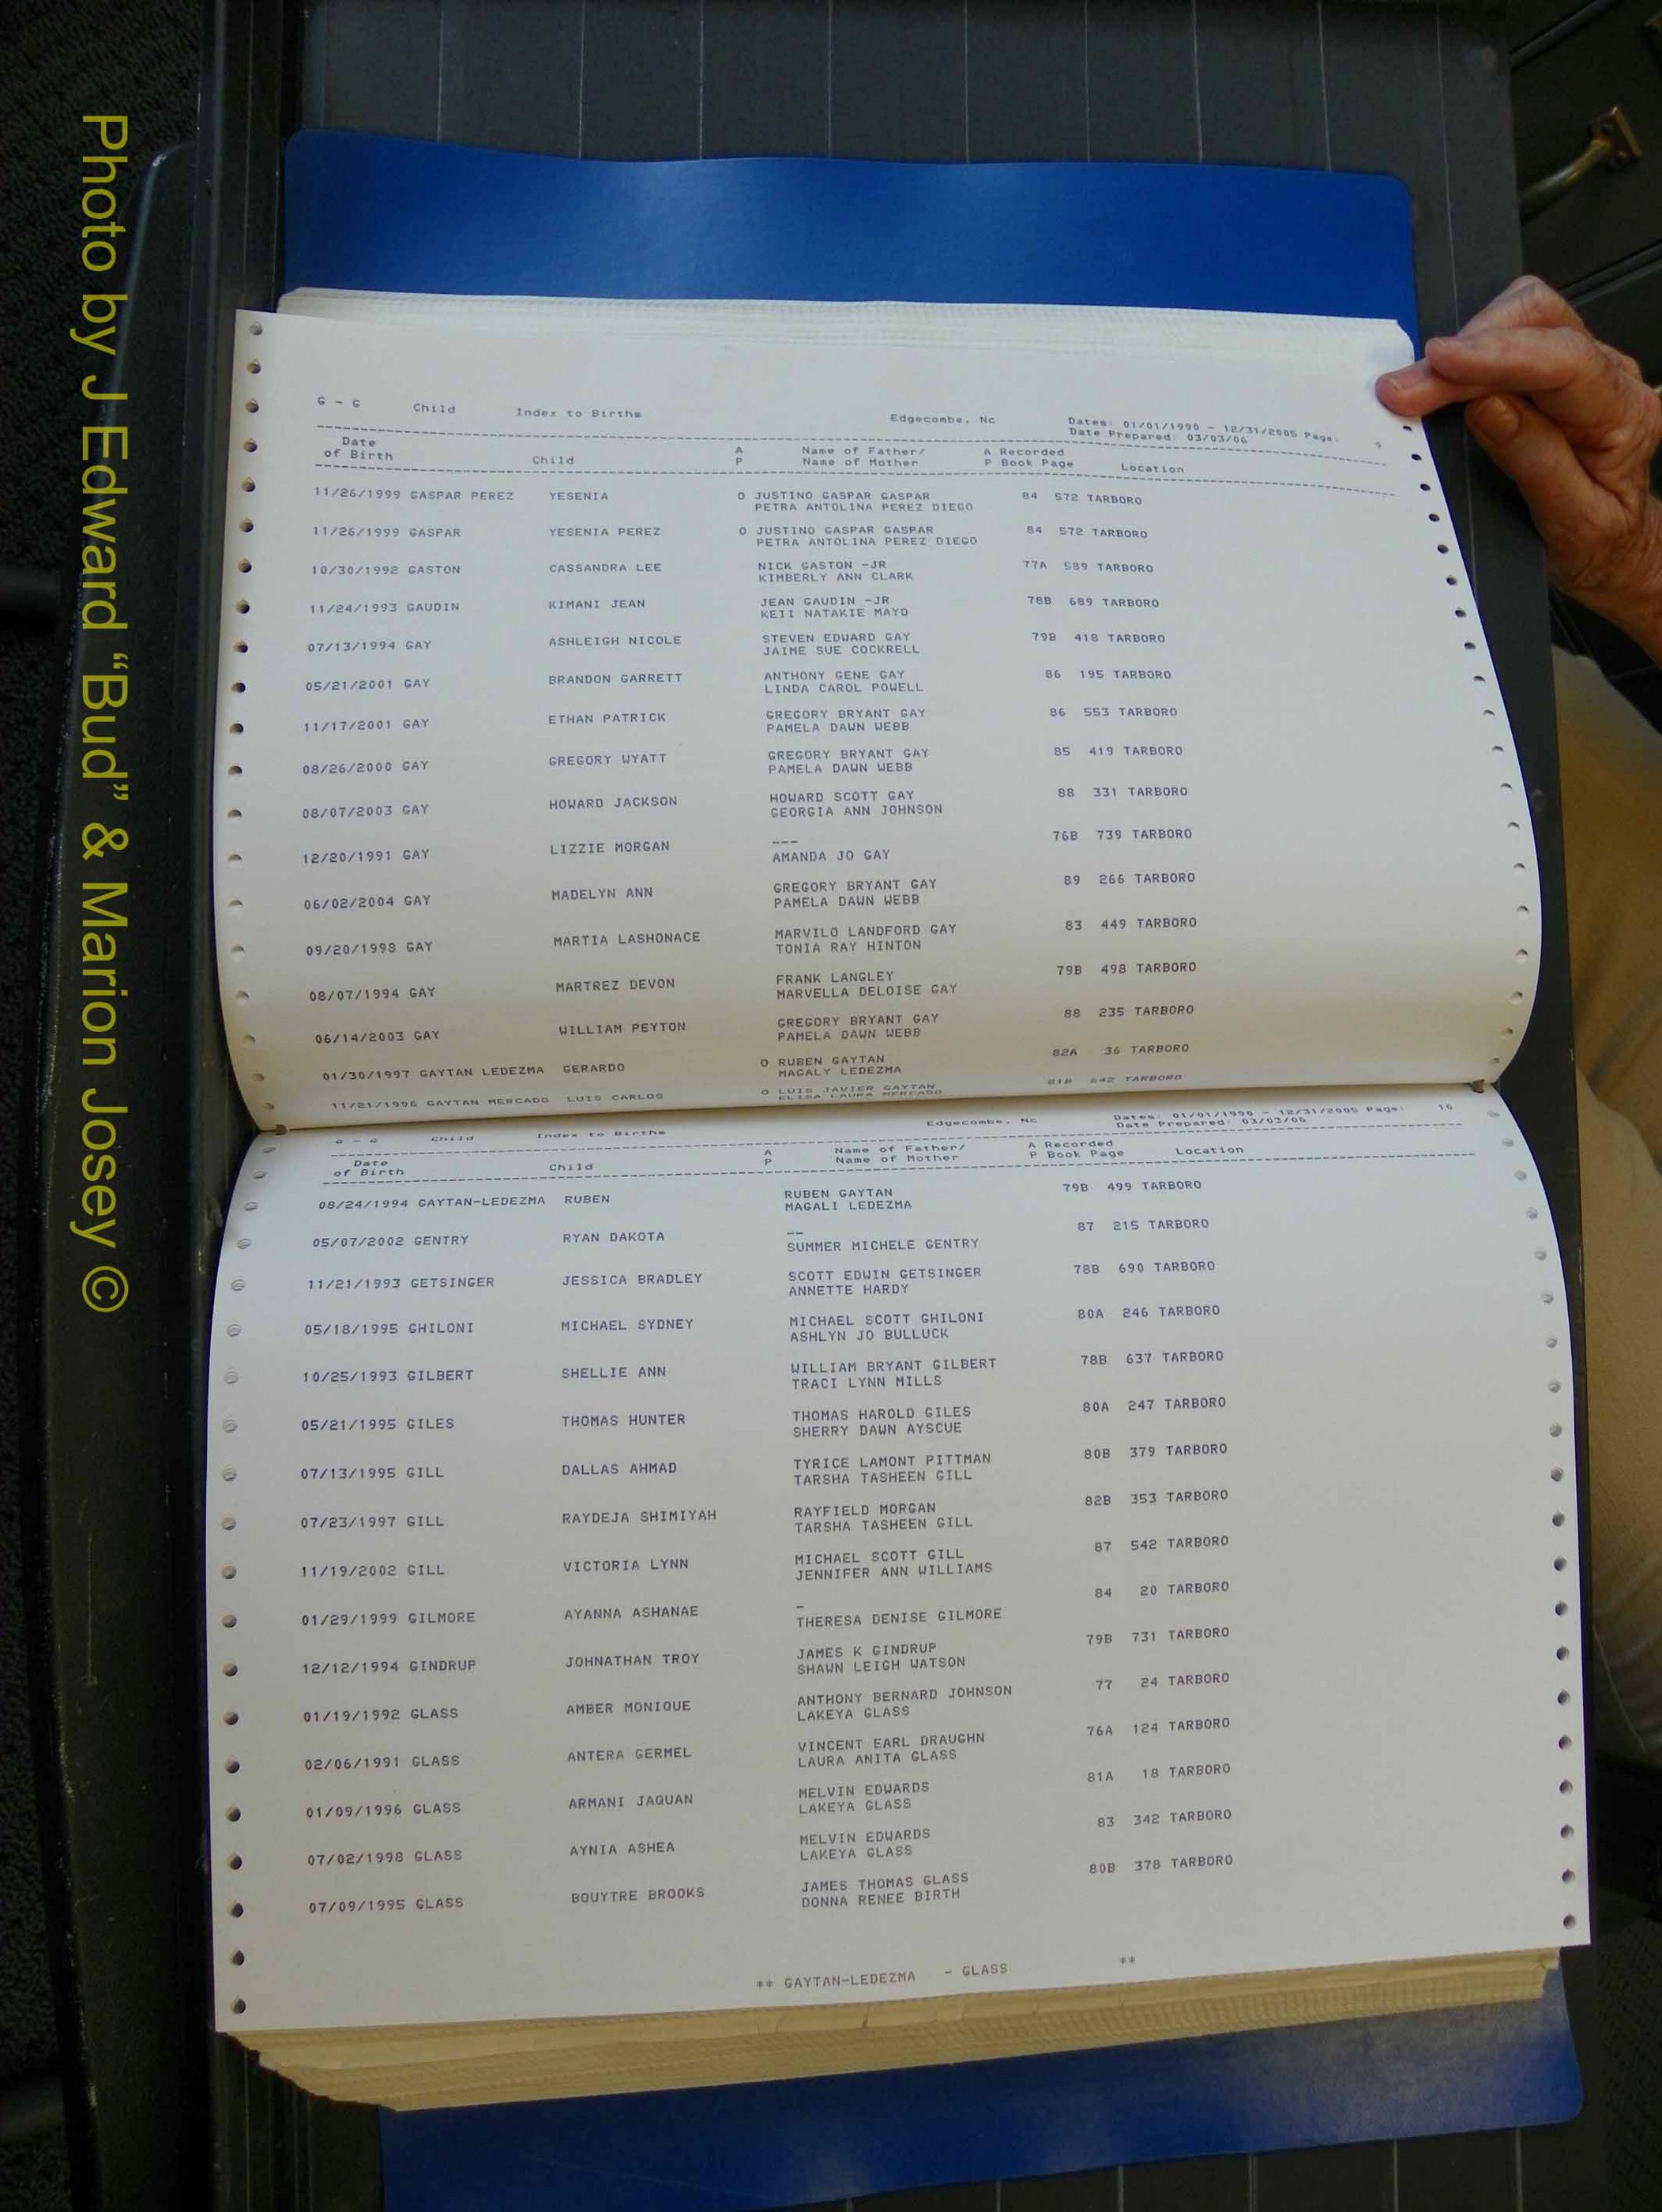 Photo by J Edward “Bud” & Marion Josey ©
G - G Child Index to Births Edgecombe, Nc Dates: 01/01/1990 - 12/31/2005 Page: 9
Date Prepared: 03/03/06
Date A Name of Father/ A Recorded
of Birth Child P Name of Mother P Book Page Location
11/26/1999 GASPAR PEREZ YESENIA O JUSTINO GASPAR GASPAR 84 572 TARBORO
PETRA ANTOLINA PEREZ DIEGO
11/26/1999 GASPAR YESENIA PEREZ O JUSTINO GASPAR GASPAR 84 572 TARBORO
PETRA ANTOLINA PEREZ DIEGO
10/30/1992 GASTON CASSANDRA LEE NICK GASTON -JR 77A 589 TARBORO
KIMBERLY ANN CLARK
11/24/1993 GAUDIN KIMANI JEAN JEAN GAUDIN -JR 78B 689 TARBORO
KEII NATAKIE MAYO
07/13/1994 GAY ASHLEIGH NICOLE STEVEN EDWARD GAY 79B 418 TARBORO
JAIME SUE COCKRELL
05/21/2001 GAY BRANDON GARRETT ANTHONY GENE GAY 86 195 TARBORO
LINDA CAROL POWELL
11/17/2001 GAY ETHAN PATRICK GREGORY BRYANT GAY 86 553 TARBORO
PAMELA DAWN WEBB
08/26/2000 GAY GREGORY WYATT GREGORY BRYANT GAY 85 419 TARBORO
PAMELA DAWN WEBB
08/07/2003 GAY HOWARD JACKSON HOWARD SCOTT GAY 88 331 TARBORO
GEORGIA ANN JOHNSON
12/20/1991 GAY LIZZIE MORGAN --- 76B 739 TARBORO
AMANDA JO GAY
06/02/2004 GAY MADELYN ANN GREGORY BRYANT GAY 89 266 TARBORO
PAMELA DAWN WEBB
09/20/1998 GAY MARTIA LASHONACE MARVILO LANDFORD GAY 83 449 TARBORO
TONIA RAY HINTON
08/07/1994 GAY MARTREZ DEVON FRANK LANGLEY 79B 498 TARBORO
MARVELLA DELOISE GAY
06/14/2003 GAY WILLIAM PEYTON GREGORY BRYANT GAY 88 235 TARBORO
PAMELA DAWN WEBB
01/30/1997 GAYTAN LEDEZMA GERARDO O RUBEN GAYTAN 82A 36 TARBORO
MAGALY LEDEZMA
11/21/1996 GAYTAN MERCADO LUIS CARLOS O LUIS JAVIER GAYTAN 81B 642 TARBORO
ELISA LAURA MERCADO
G - G Child Index to Births Edgecombe, Nc Dates: 01/01/1990 - 12/31/2005 Page: 10
Date Prepared: 03/03/06
Date A Name of Father/ A Recorded
of Birth Child P Name of Mother P Book Page Location
08/24/1994 GAYTAN-LEDEZMA RUBEN RUBEN GAYTAN 79B 499 TARBORO
MAGALI LEDEZMA
05/07/2002 GENTRY RYAN DAKOTA -- 87 215 TARBORO
SUMMER MICHELE GENTRY
11/21/1993 GETSINGER JESSICA BRADLEY SCOTT EDWIN GETSINGER 78B 690 TARBORO
ANNETTE HARDY
05/18/1995 GHILONI MICHAEL SYDNEY MICHAEL SCOTT GHILONI 80A 246 TARBORO
ASHLYN JO BULLUCK
10/25/1993 GILBERT SHELLIE ANN WILLIAM BRYANT GILBERT 78B 637 TARBORO
TRACI LYNN MILLS
05/21/1995 GILES THOMAS HUNTER THOMAS HAROLD GILES 80A 247 TARBORO
SHERRY DAWN AYSCUE
07/13/1995 GILL DALLAS AHMAD TYRICE LAMONT PITTMAN 80B 379 TARBORO
TARSHA TASHEEN GILL
07/23/1997 GILL RAYDEJA SHIMIYAH RAYFIELD MORGAN 82B 353 TARBORO
TARSHA TASHEEN GILL
11/19/2002 GILL VICTORIA LYNN MICHAEL SCOTT GILL 87 542 TARBORO
JENNIFER ANN WILLIAMS
01/29/1999 GILMORE AYANNA ASHANAE - 84 20 TARBORO
THERESA DENISE GILMORE
12/12/1994 GINDRUP JOHNATHAN TROY JAMES K GINDRUP 79B 731 TARBORO
SHAWN LEIGH WATSON
01/19/1992 GLASS AMBER MONIQUE ANTHONY BERNARD JOHNSON 77 24 TARBORO
LAKEYA GLASS
02/06/1991 GLASS ANTERA GERMEL VINCENT EARL DRAUGHN 76A 124 TARBORO
LAURA ANITA GLASS
01/09/1996 GLASS ARMANI JAQUAN MELVIN EDWARDS 81A 18 TARBORO
LAKEYA GLASS
07/02/1998 GLASS AYNIA ASHEA MELVIN EDWARDS 83 342 TARBORO
LAKEYA GLASS
07/09/1995 GLASS BOUYTRE BROOKS JAMES THOMAS GLASS 80B 378 TARBORO
DONNA RENEE BIRTH
** GAYTAN-LEDEZMA - GLASS **